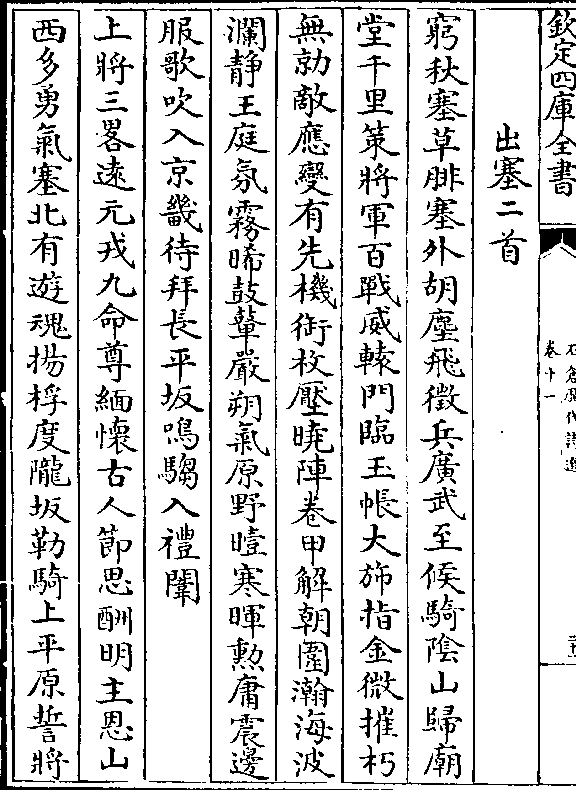 欽定四庫全書
石倉歷代詩選
卷十一
出塞二首
窮秋塞草腓塞外胡塵飛徵兵廣武至候騎陰山歸廟
堂千里策將軍百戰威轅門臨玉帳大斾指金微摧朽
無勍敵應變有先機銜枚壓曉陣卷甲解朝圍瀚海波
瀾静王庭氛霧晞鼓鼙嚴朔氣原野曀寒暉勲庸震邊
服歌吹入京畿待拜長平坂鳴騶入禮闈
上將三畧遠元戎九命尊緬懷古人節思酬明主恩山
西多勇氣塞北有遊魂揚桴度隴坂勒騎上平原誓將